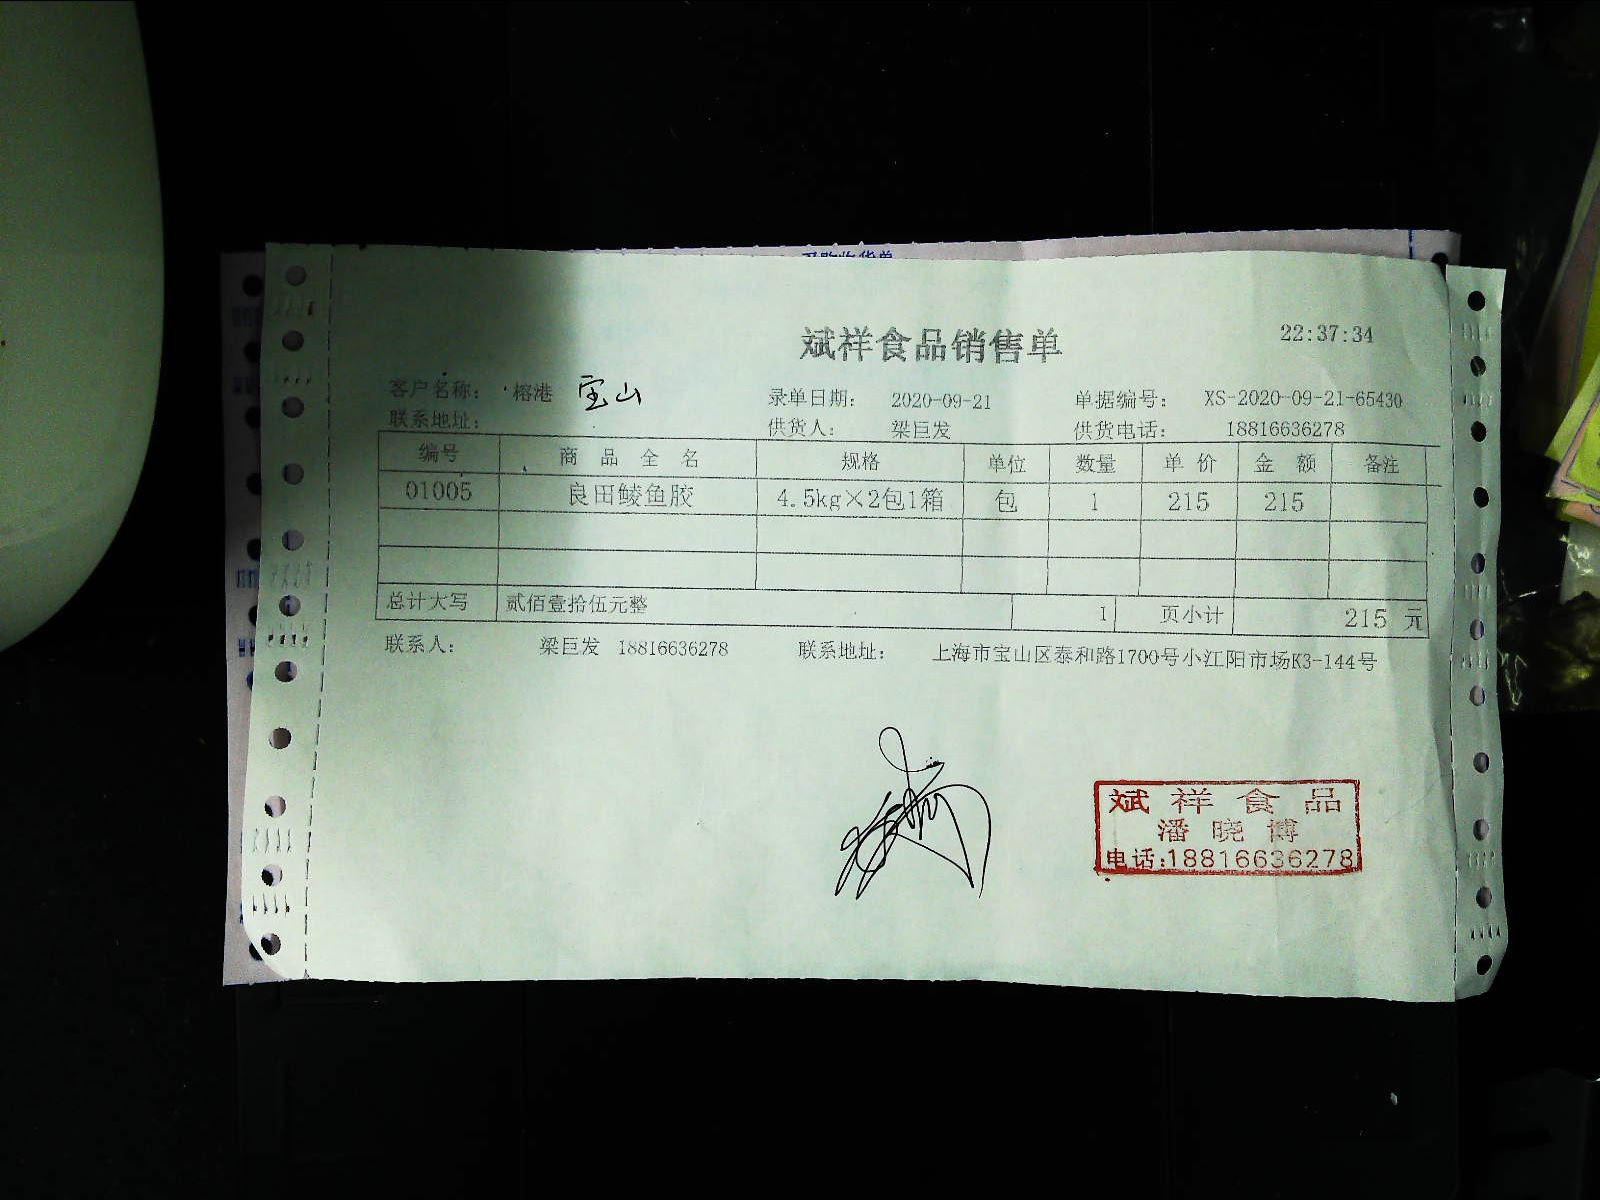 采购收货单
斌祥食品销售单 22:37:34
客户名称: 榕港 宝山 录单日期: 2020-09-21 单据编号: XS-2020-09-21-65430
联系地址: 供货人: 梁巨发 供货电话: 18816636278
编号 商品全名 规格 单位 数量 单价 金额 备注
01005 良田鲮鱼胶 4.5kg×2包1箱 包 1 215 215
总计大写 贰佰壹拾伍元整 1 页小计 215 元
联系人: 梁巨发 18816636278 联系地址: 上海市宝山区泰和路1700号小江阳市场K3-144号
斌祥食品
潘晓博
电话:18816636278